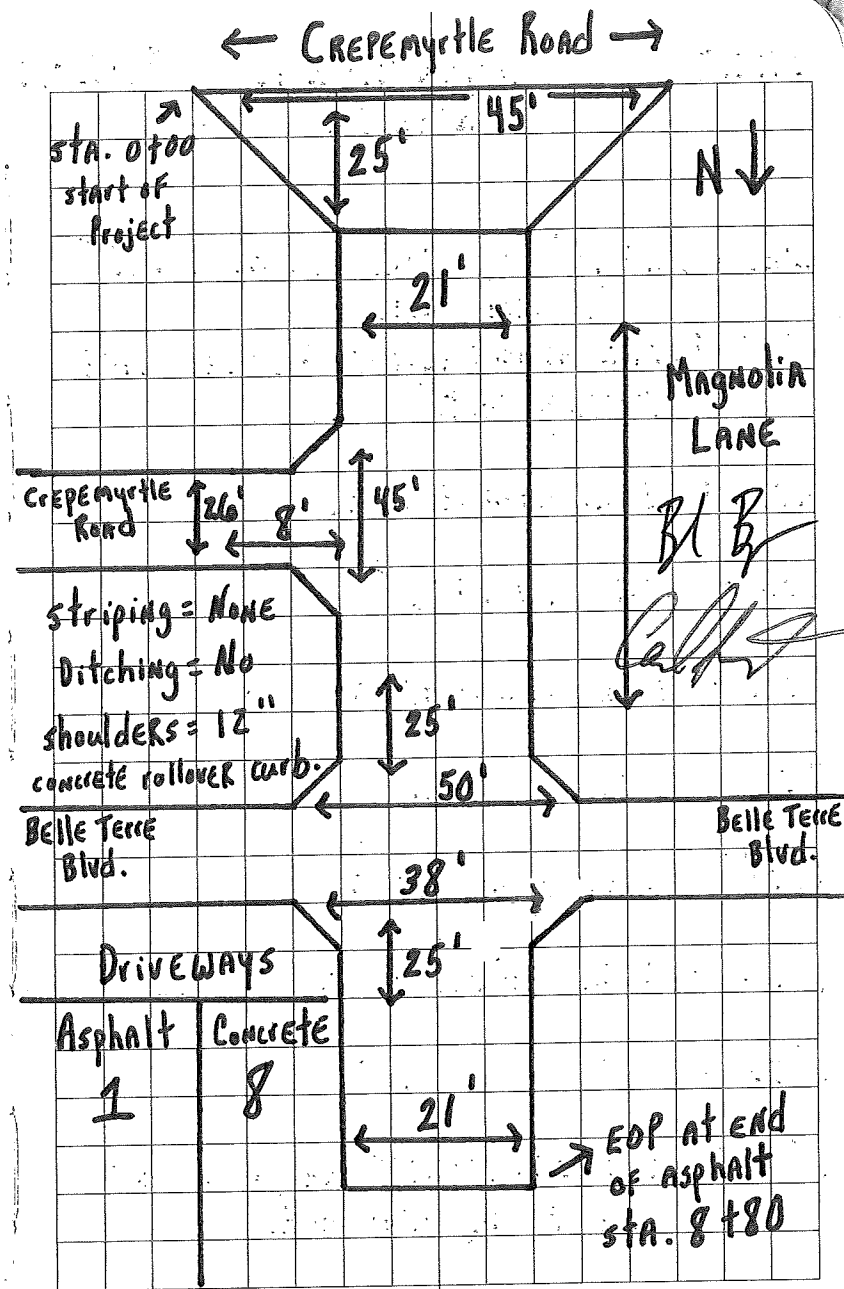 ← CREPEMYRTLE ROAD →
45'
StA. 0+00
start of
Project
25'
N ↓
21'
MAGNOLIA
LANE
CREPEMYRTLE
ROAD
26'
8'
45'
striping = NONE
Ditching = No
shoulders = 12"
CONCRETE rollover curb.
25'
50'
BELLE TERRE
Blvd.
BELLE TERRE
Blvd.
38'
25'
DRIVEWAYS
Asphalt
CONCRETE
1
8
21'
EOP At END
OF Asphalt
stA. 8+80